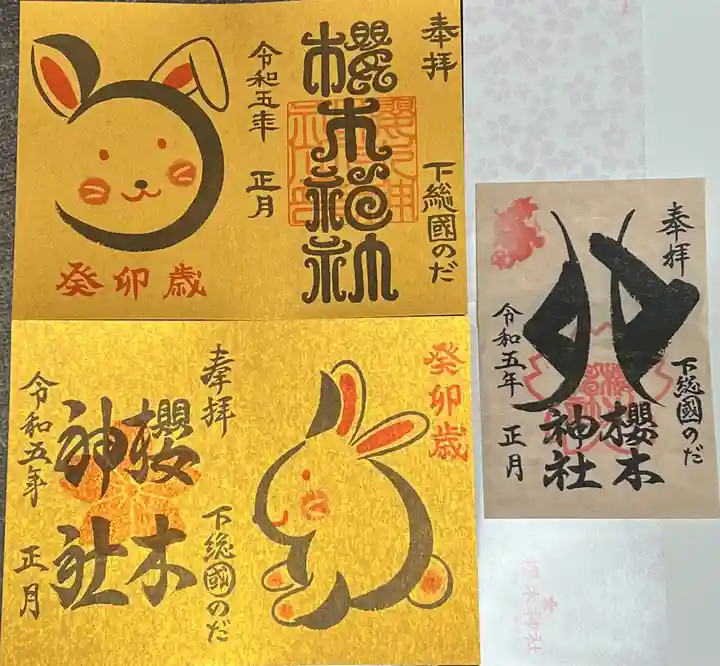 奉拝
下総國のだ
櫻木神社
令和五年
正月
癸卯歳
癸卯歳
奉拝
下総國のだ
櫻木
神社
令和五年
正月
奉拝
下総國のだ
櫻木
神社
令和五年
正月
櫻木神社